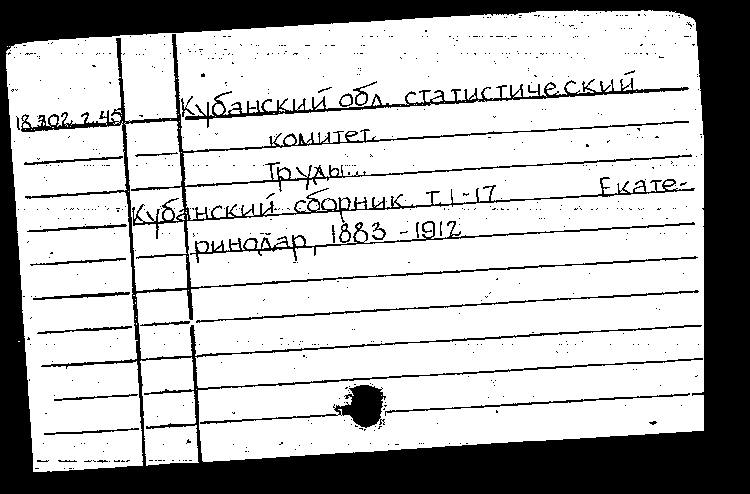 18.302.2.45
Кубанский обл. статистический
комитет.
Труды...
Кубанский сборник. т. 1-17 Екате-
ринодар, 1883 - 1912